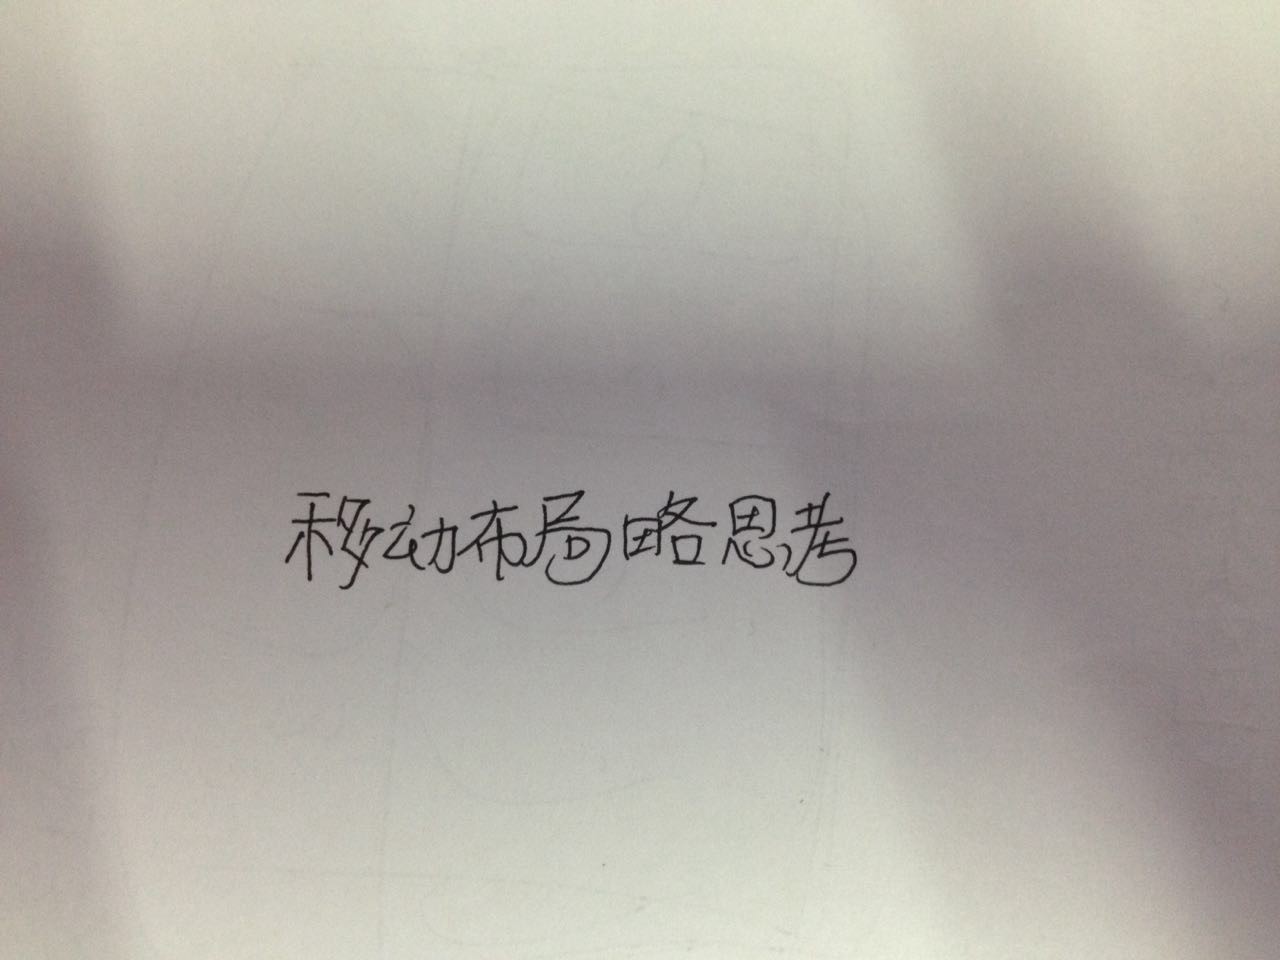 移动布局略思考